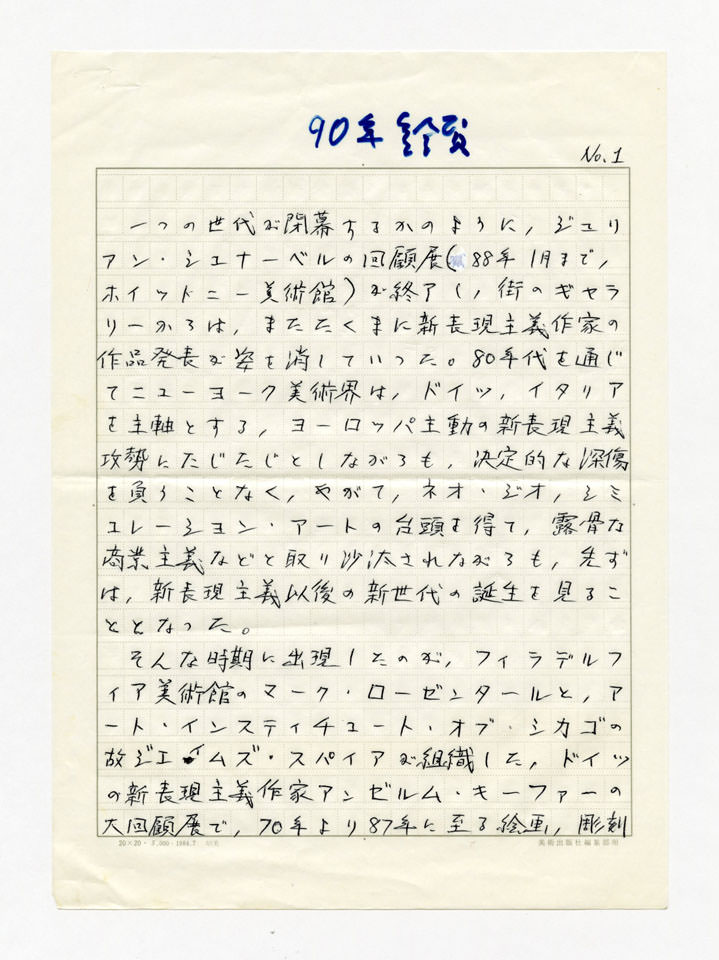 90年絵画
No.1
一つの世代が閉幕するかのように,ジュリ
アン・シュナーベルの回顧展(88年1月まで,
ホイットニー美術館)が終了し,街のギャラ
リーからは,またたくまに新表現主義作家の
作品発表が姿を消していった。80年代を通じ
てニューヨーク美術界は,ドイツ,イタリア
を主軸とする,ヨーロッパ主動の新表現主義
攻勢にたじたじとしながらも,決定的な深傷
を負うことなく,やがて,ネオ・ジオ,シミ
ュレーション・アートの台頭を得て,露骨な
商業主義などと取り沙汰されながらも,先ず
は,新表現主義以後の新世代の誕生を見るこ
ととなった。
そんな時期に出現したのが,フィラデルフ
ィア美術館のマーク・ローゼンタールと,ア
ート・インスティチュート・オブ・シカゴの
故ジェイムズ・スパイアが組織した,ドイツ
の新表現主義作家アンゼルム・キーファーの
大回顧展で,70年より87年に至る絵画,彫刻
20×20・ 3,000・1984.7
美術出版社編集部用